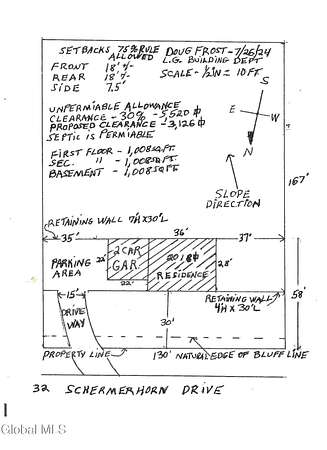 SETBACKS 75% RULE ALLOWED
FRONT 18' +/-
REAR 18' +/-
SIDE 7.5'
DOUG FROST - 7/26/24
L.G. BUILDING DEPT
SCALE - 1/2 IN = 10 FT
S
E W
N
UNPERMIABLE ALLOWANCE
CLEARANCE - 30% - 5,520 ф
PROPOSED CLEARANCE - 3,126 ф
SEPTIC IS PERMIABLE
FIRST FLOOR - 1,008 SQ.FT.
SEC. " - 1,008 SQ.FT.
BASEMENT - 1,008 SQ FT
SLOPE
DIRECTION
167'
RETAINING WALL 7'H X 30'L
35' 36' 37'
PARKING
AREA
22'
2 CAR
GAR.
22'
RESIDENCE
28'
RETAINING WALL
4'H X 30'L
58'
15'
DRIVE
WAY
30'
PROPERTY LINE
130' NATURAL EDGE OF BLUFF LINE
32 SCHERMERHORN DRIVE
Global MLS